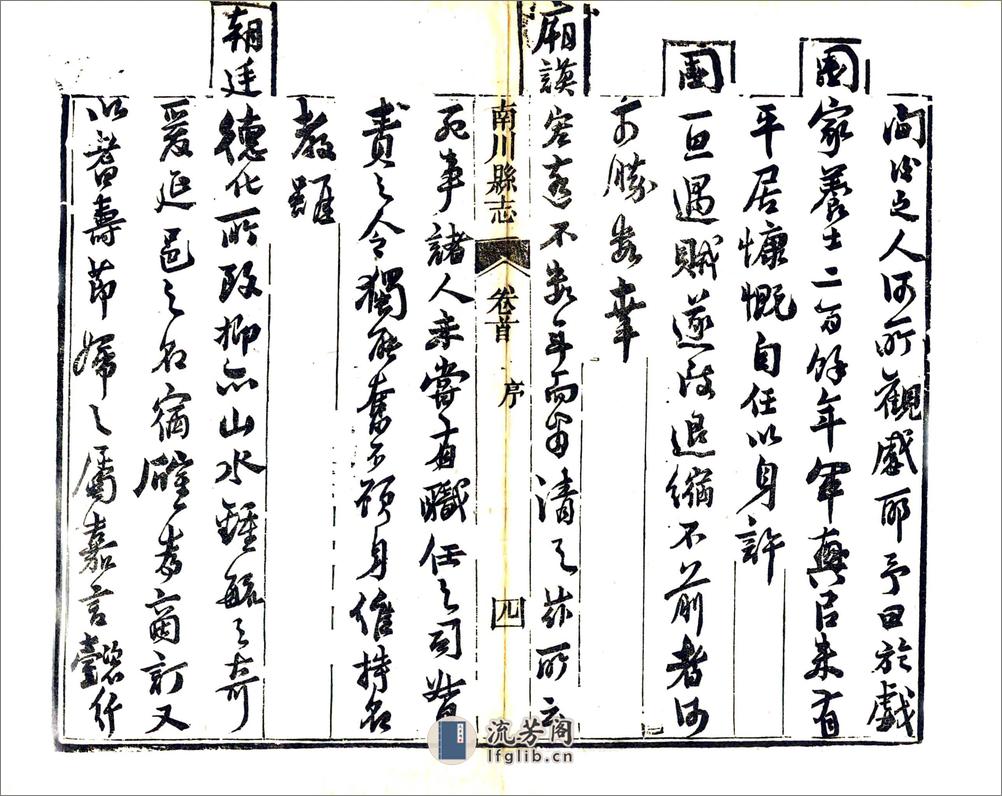 之人何所觀感耶予曰於戲
國家養士二百餘年軍興以來有
平居慷慨自任以身許
國一旦遇賊遂致退縮不前者何
可勝數幸
廟謨宏遠不數年而肅清之茲所云
南川縣志 卷首 序 九
死事諸人未嘗有職任之司
責之今獨能奮不顧身維持名
教雖
朝廷德化所致抑亦山水鍾毓之奇
爰延邑之名宿確為商訂又
以耆壽節婦之屬嘉言懿行
流芳阁
lfglib.cn